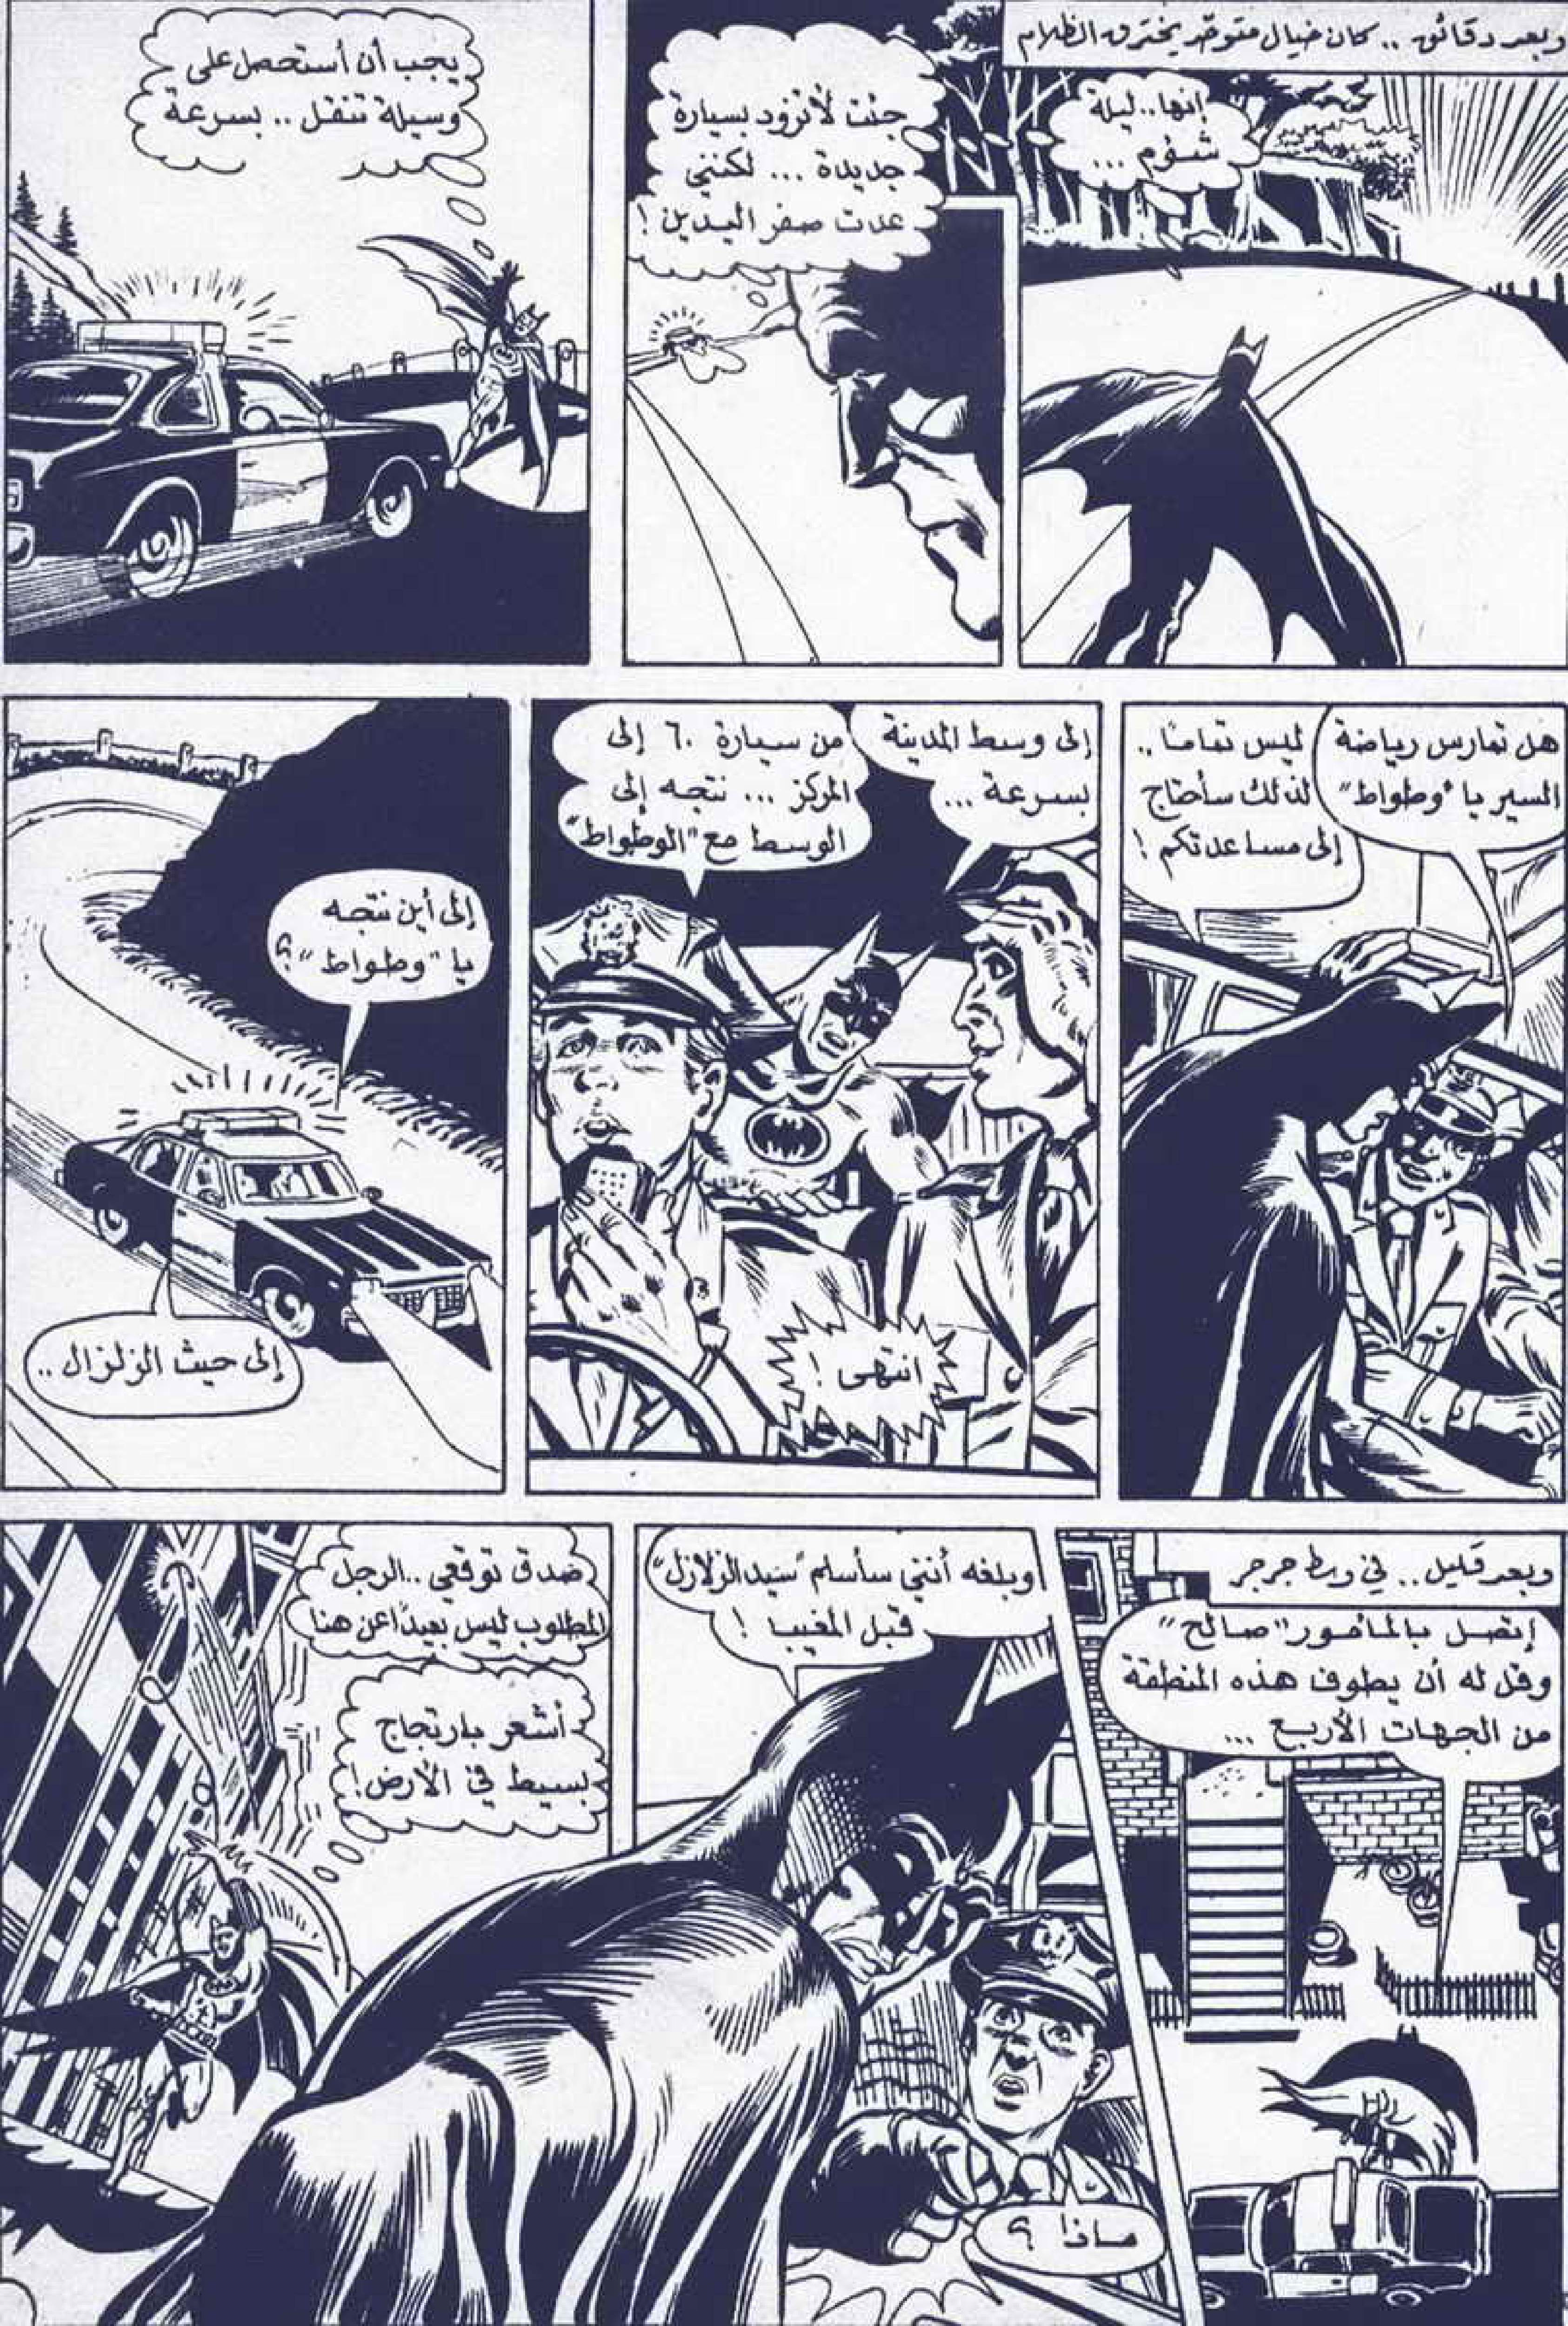 وبعد دقائق .. كان خيال متوحد يخترق الظلام
إنها.. ليلة
شؤم ...
جئت لأتزود بسيارة
جديدة ... لكنني
عدت صفر اليدين !
يجب أن أستحصل على
وسيلة تنقل .. بسرعة
هل تمارس رياضة
السير يا "وطواط"
ليس تماما ..
لذلك سأحتاج
إلى مساعدتكم !
إلى وسط المدينة
بسرعة ...
من سيارة ٦٠ إلى
المركز ... نتجه إلى
الوسط مع "الوطواط"
انتهى !
إلى أين نتجه
يا "وطواط" ؟
إلى حيث الزلزال ..
وبعد قليل .. في وسط جرجر
إتصل بالمأمور "صالح"
وقل له أن يطوف هذه المنطقة
من الجهات الأربع ...
وبلغه أنني سأسلم "سيد الزلازل"
قبل المغيب !
ماذا ؟
صدق توقعي .. الرجل
المطلوب ليس بعيدًا عن هنا
أشعر بارتجاج
بسيط في الأرض !